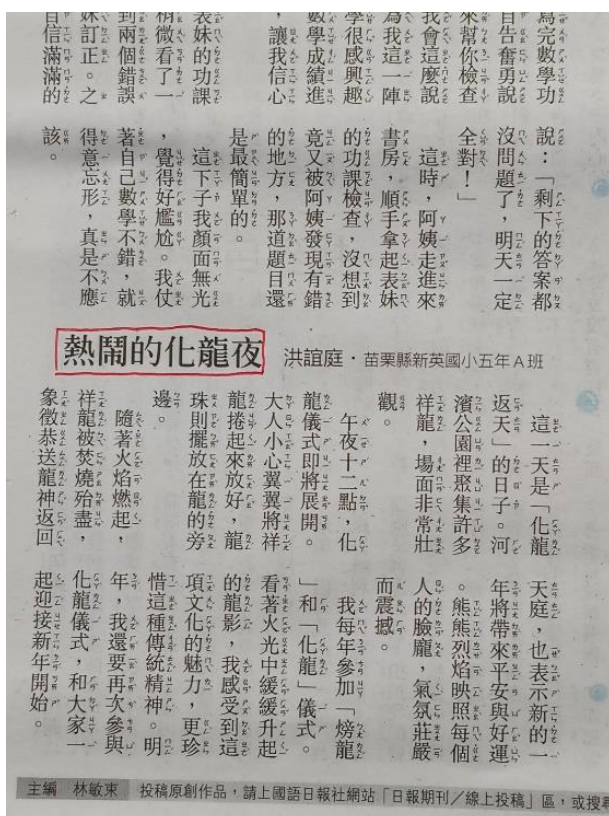 寫完數學功
自告奮勇說
來幫你檢查
我會這麼說
為我這一陣
學很感興趣
數學成績進
，讓我信心
表妹的功課
稍微看了一
到兩個錯誤
妹訂正。之
自信滿滿的
說：「剩下的答案都
沒問題了，明天一定
全對！」
這時，阿姨走進來
書房，順手拿起表妹
的功課檢查，沒想到
竟又被阿姨發現有錯
的地方，那道題目還
是最簡單的。
這下子我顏面無光
，覺得好尷尬。我仗
著自己數學不錯，就
得意忘形，真是不應
該。
熱鬧的化龍夜 洪誼庭・苗栗縣新英國小五年A班
這一天是「化龍
返天」的日子。河
濱公園裡聚集許多
祥龍，場面非常壯
觀。
午夜十二點，化
龍儀式即將展開。
大人小心翼翼將祥
龍捲起來放好，龍
珠則擺放在龍的旁
邊。
隨著火焰燃起，
祥龍被焚燒殆盡，
象徵恭送龍神返回
天庭，也表示新的一
年將帶來平安與好運
。熊熊烈焰映照每個
人的臉龐，氣氛莊嚴
而震撼。
我每年參加「㷫龍
」和「化龍」儀式。
看著火光中緩緩升起
的龍影，我感受到這
項文化的魅力，更珍
惜這種傳統精神。明
年，我還要再次參與
化龍儀式，和大家一
起迎接新年開始。
主編 林敏束 投稿原創作品，請上國語日報社網站「日報期刊／線上投稿」區，或搜尋